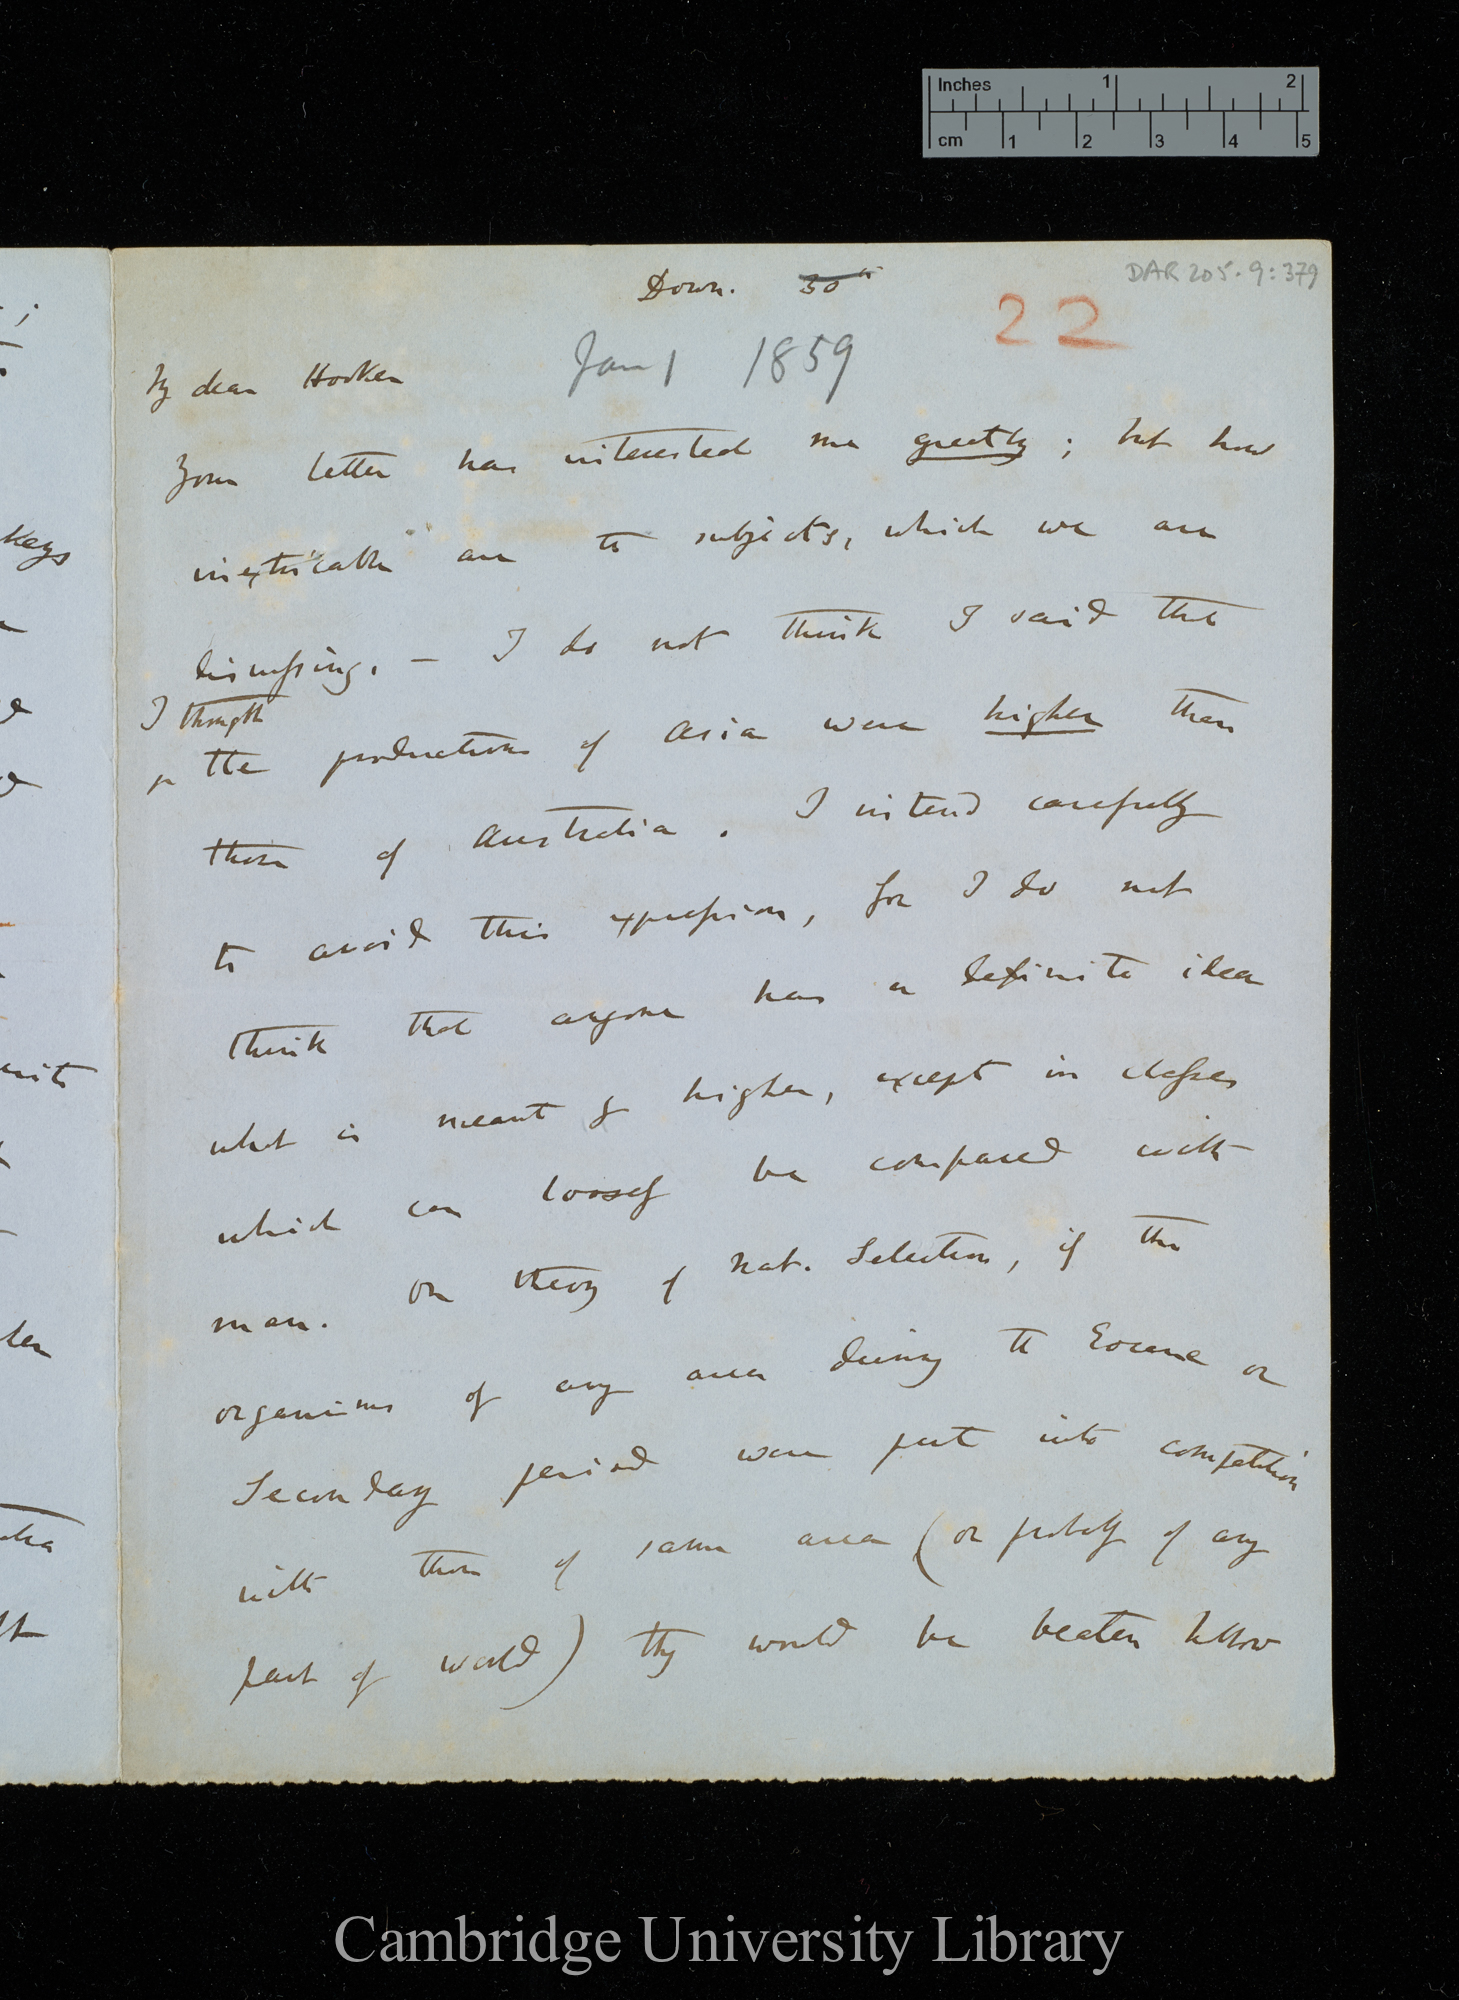 Inches 1 2
cm 1 2 3 4 5
DAR 205.9:379
Down. 30th
22
Jan 1 1859
My dear Hooker
Your letter has interested me greatly; but how
inextricable are the subjects, which we are
discussing. — I do not think I said that
I thought
the productions of Asia were higher than
those of Australia. I intend carefully
to avoid this expression, for I do not
think that anyone has a definite idea
what is meant by higher, except in classes
which can loosely be compared with
man. On theory of Nat. Selection, if the
organisms of any area during the Eocene or
Secondary period were put into competition
with those of same area (or probably of any
part of world) they would be beaten hollow
keys
Cambridge University Library